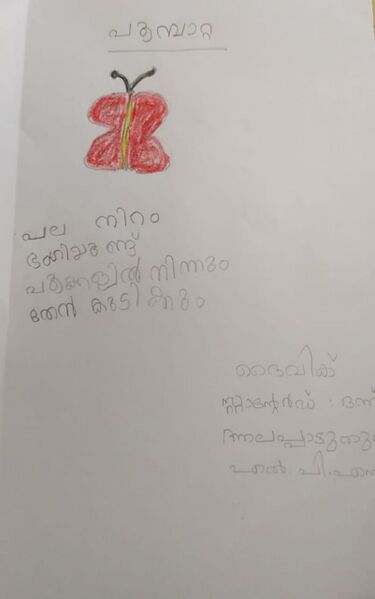 പൂമ്പാറ്റ
പല നിറം
ഭംഗിയുണ്ട്
പൂക്കളിൽ നിന്നും
തേൻ കുടിക്കും
ദൈവിക്
സ്റ്റാന്റേർഡ് : ഒന്ന്
എൽ. പി.